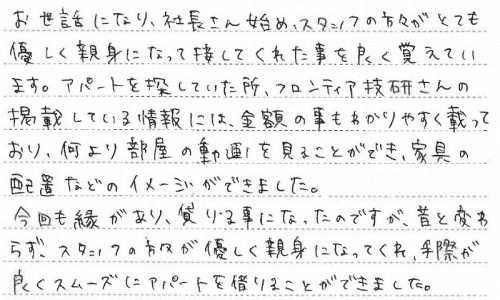 お世話になり、社長さん始め、スタッフの方々がとても
優しく親身になって接してくれた事を良く覚えてい
ます。アパートを探していた所、フロンティア技研さんの
掲載している情報には、金額の事もわかりやすく載って
おり、何より部屋の動画を見ることができ、家具の
配置などのイメージができました。
今回も縁があり、借りる事になったのですが、昔と変わ
らず、スタッフの方々が優しく親身になってくれ、手際が
良くスムーズにアパートを借りることができました。